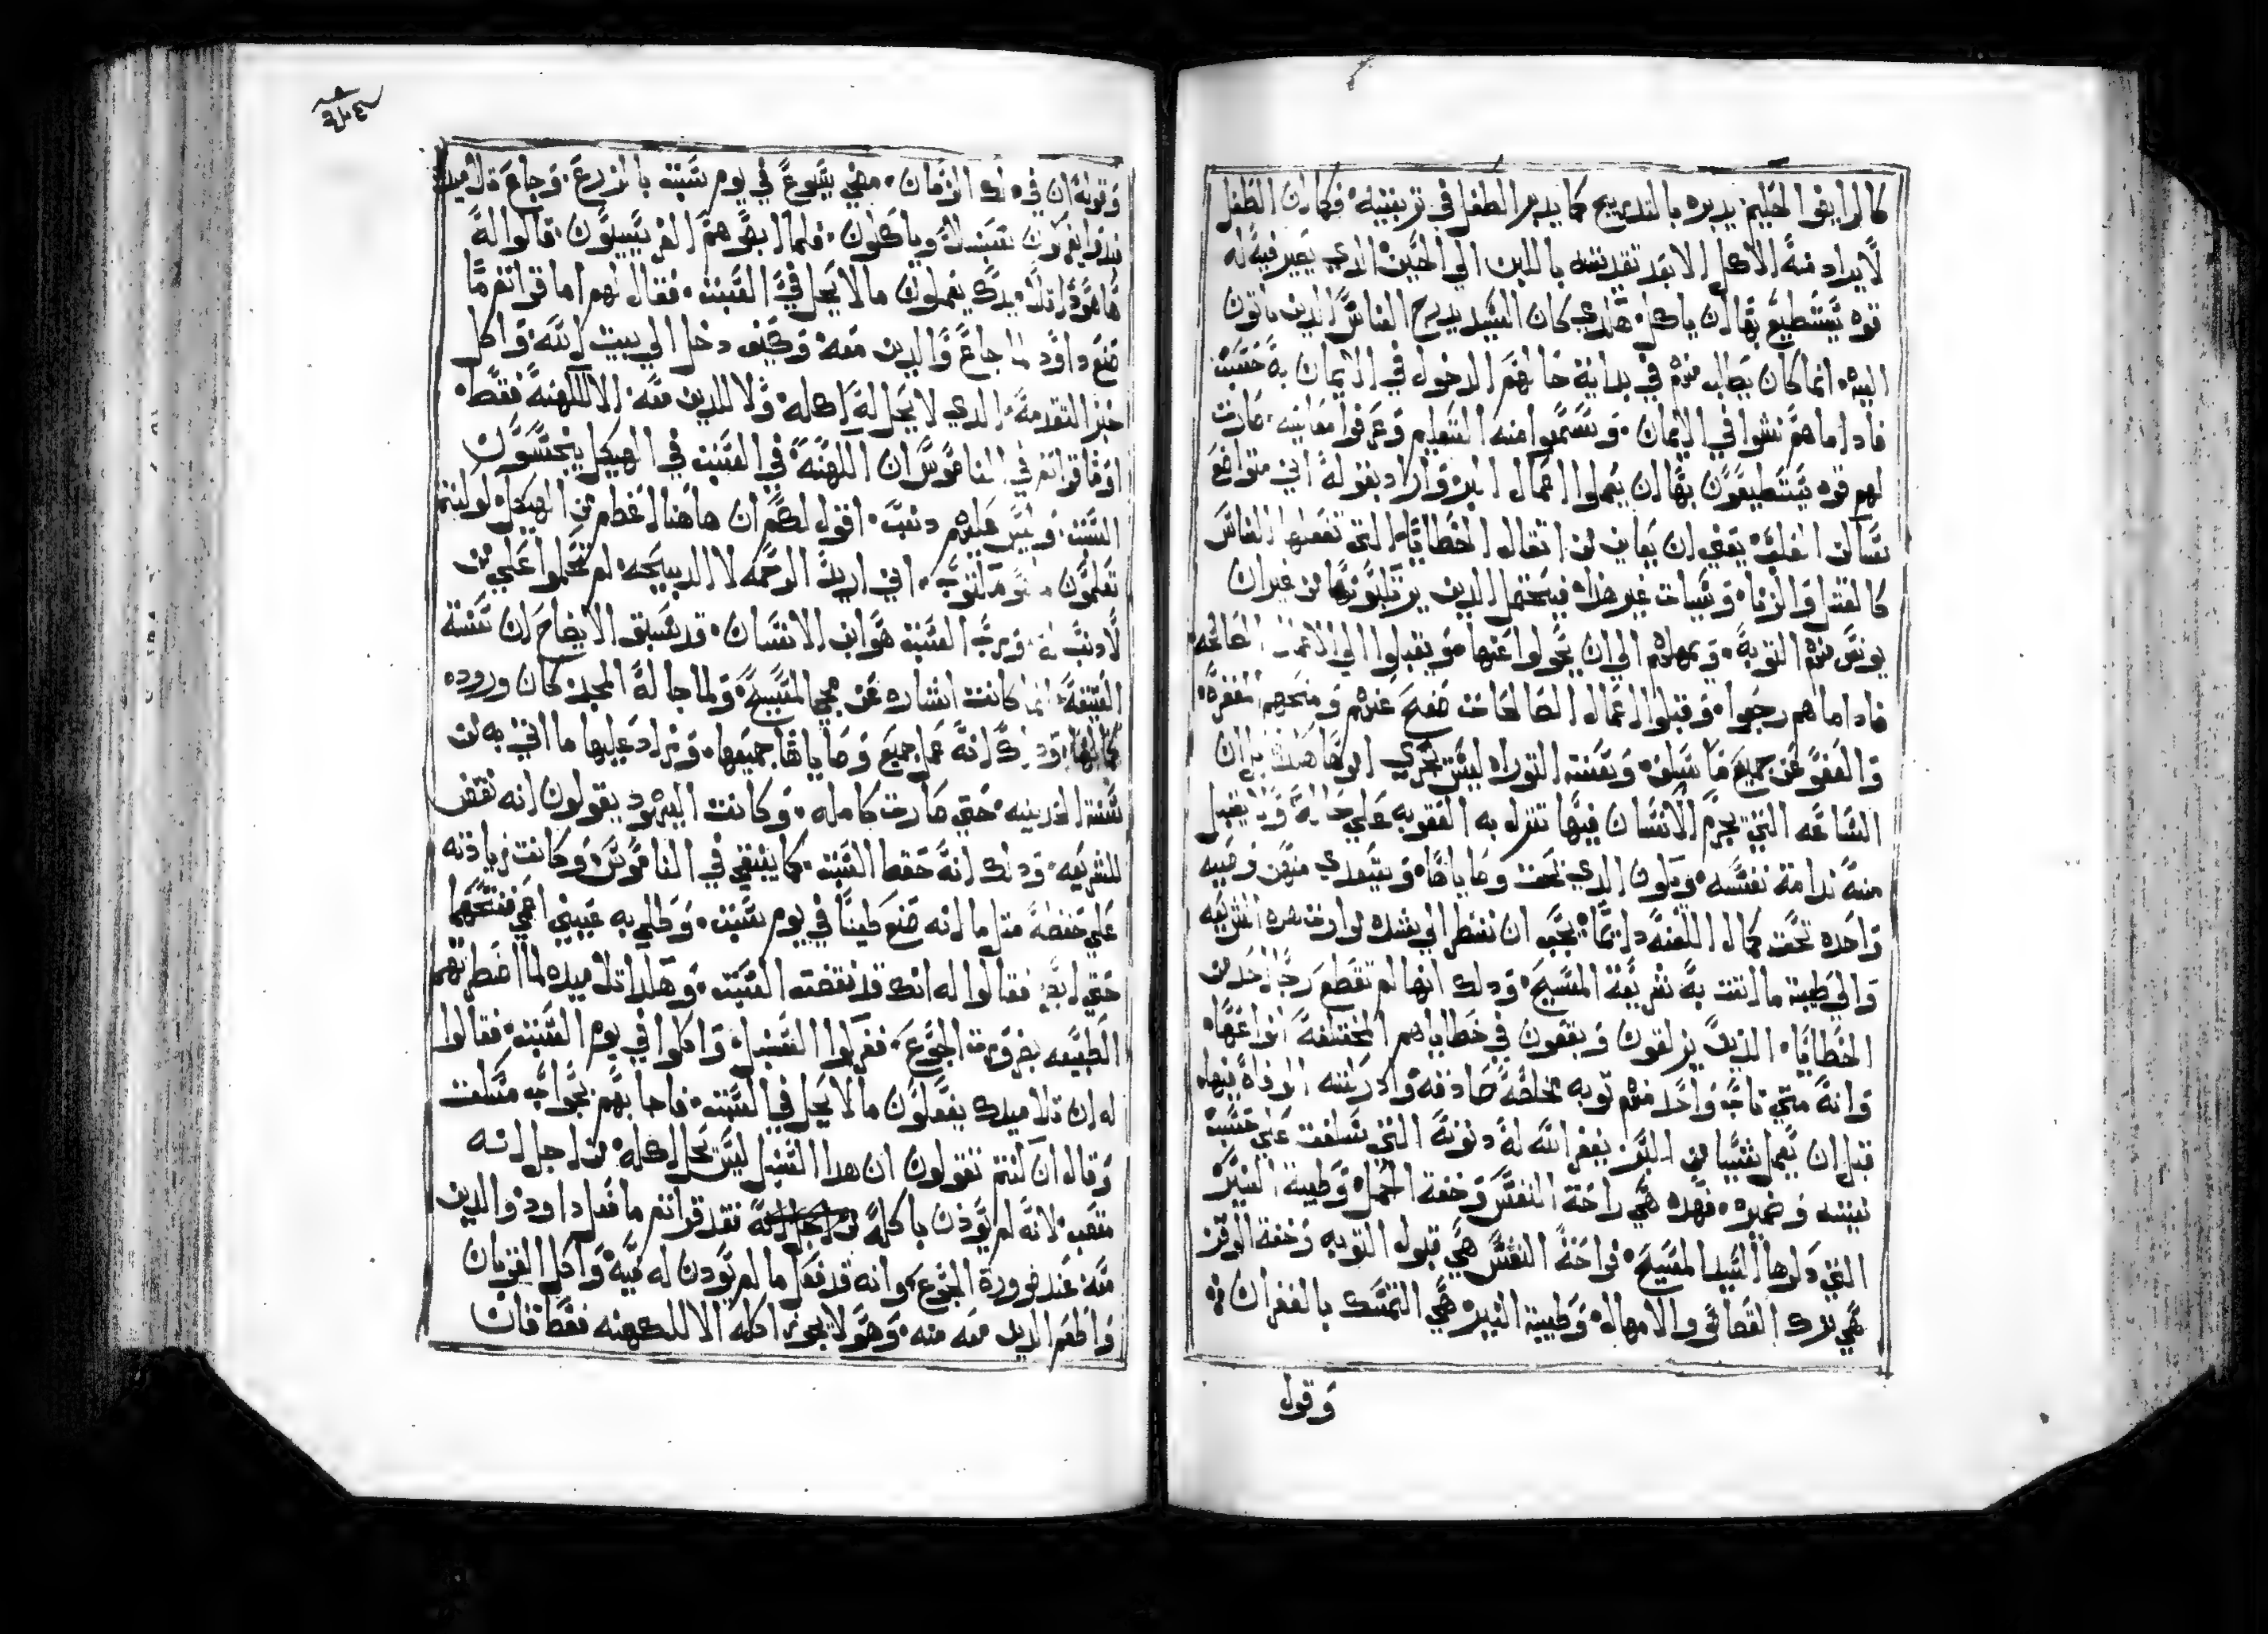 كالرايض الحليم يدبره بالتدريج كما يدبر الطفل في تربيته فكما ان الطفل
لا يراد منه الاكل الا بعد تغديته باللبن الي الحين الدي يصير فيه له
قوه يستطيع بها ان ياكل هكدي كان السيد يدرج الناس الدين ياتون
اليه انما كان يطلب منهم في بداية حالهم الدخول في الايمان به حسب
فاداما هم نشوا في الايمان وتسمعوا منه التعليم وعرفوا معانيه صارت
لهم قوه يستطيعون بها ان يعملوا اعمال البر واراد بقوله اني متواضع
ساكن القلب يعني ان يعاف من اتقال الخطايا التي تفعلها الناس
كالقتل والزنا وشيات غير دلك فيحتمل الدين يرتكبونها من غير ان
يويس منهم التوبة ويمهلهم الي ان يتحولوا عنها ويقبلوا الي الاعمال الصالحه
فاداما هم رجعوا وقبلوا اعمال الصالحات صفح عنهم ومنحهم المغفرة
والعفو عن جميع ما سلف وسنة التوراه ليس تجري امورها هكدا بل ان
الساعه التي يجرم الانسان فيها تنزل به العقوبه علي حاله ولا يقبل
منه ندامة نفسه ويكون الدي تحت وصاياها ويتعدي منهن وصيه
واحده تحت كمال اللعنة دايما يجب ان ننظر الي شده لوازمت هده الشريعه
والي طيبة ما اتت به شريعة المسيح ودلك انها لم تقطع رجا احد من
الخطايا الدين يزلقون ويقعون في خطاياهم المختلفة انواعها
وانه متي تاب واحد منهم توبه مخلصة صادقه وادركته الوفاه فيها
قبل ان يعمل شيا من البر يغفر الله له دنوبه التي سلفت علي حسب
نيته وضميره فهده هي راحة النفس وخفة الحمل وطيبة النير
التي دكرها السيد المسيح فراحة النفس هي قبول التوبه وخفة الوقر
هي ترك القصاص والامهال وطيبة النير هي التمسك بالغفران
وقول
وقوله ان في دلك الزمان مضي يسوع في يوم سبت بالزرع وجاع تلاميده
فبدوا يفركون سنبلا وياكلون فلما ابصرهم الفريسيون قالوا له
هاهودا تلاميدك يفعلون ما لا يحل في السبت فقال لهم اما قراتم ما
صنع داود لما جاع والدين معه وكيف دخل الي بيت الله واكل
خبز التقدمة الدي لا يحل له اكله ولا للدين معه الا للكهنة فقط
اوما قراتم في الناموس ان الكهنة في السبت في الهيكل ينجسون
السبت وليس عليهم دنب اقول لكم ان هاهنا اعظم من الهيكل لو كنتم
تعلمون ما هو مكتوب اني اريد الرحمه لا الدبيحه لم تحكموا علي من
لا دنب له ورب السبت هو ابن الانسان قد سبق الايضاح ان سنة
العتيقة انما كانت اشاره عن مجي المسيح ولما جا له المجد كان وروده
كمالها ودلك انه عمل جميع وصاياها جميعها وزاد عليها ما اتي به من
سنته الحديثه حتي صارت كامله وكانت اليهود يقولون انه نقض
للشريعه ودلك انه حفظ السبت كما ينبغي في الناموس وكانت زيادته
علي حفظه مثل ما انه صنع طينا في يوم سبت وطلي به عيني اعمي ففتحهما
حتي ابصر فقالوا له انك قد نقضت السبت وهكدا تلاميده لما اضطرتهم
الطبيعه بضرورة الجوع ففركوا السنبل واكلوا في يوم السبت فقالوا
له ان تلاميدك يفعلون ما لا يحل في السبت فاجابهم بجواب مسكت
وقال ان كنتم تقولون ان هدا السنبل ليس يحل اكله من اجل انه
مغصب لانه لم يودن باكله فقد قراتم ما فعل داود والدين
معه عند ضرورة الجوع وانه قد فعل ما لم يودن له فيه واكل القربان
واطعم الدين معه منه وهو لا يجوز اكله الا للكهنه فقط فان